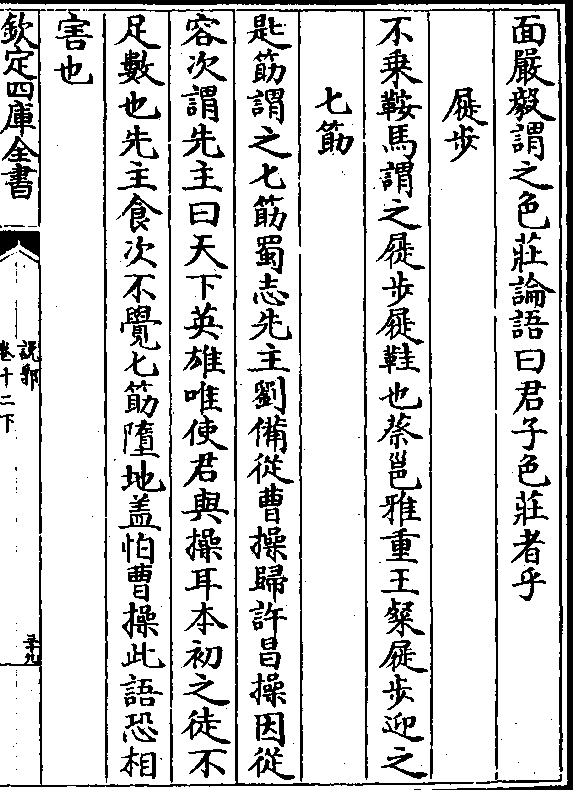 面嚴毅謂之色莊論語曰君子色莊者乎
屣步
不乗鞍馬謂之屣步屣鞋也蔡邕雅重王粲屣步迎之
七筯
匙筯謂之七筯蜀志先主劉備從曹操歸許昌操因從
容次謂先主曰天下英雄唯使君與操耳本初之徒不
足數也先主食次不覺七筯墮地盖怕曹操此語恐相
害也
欽定四庫全書
說郛
卷十二下